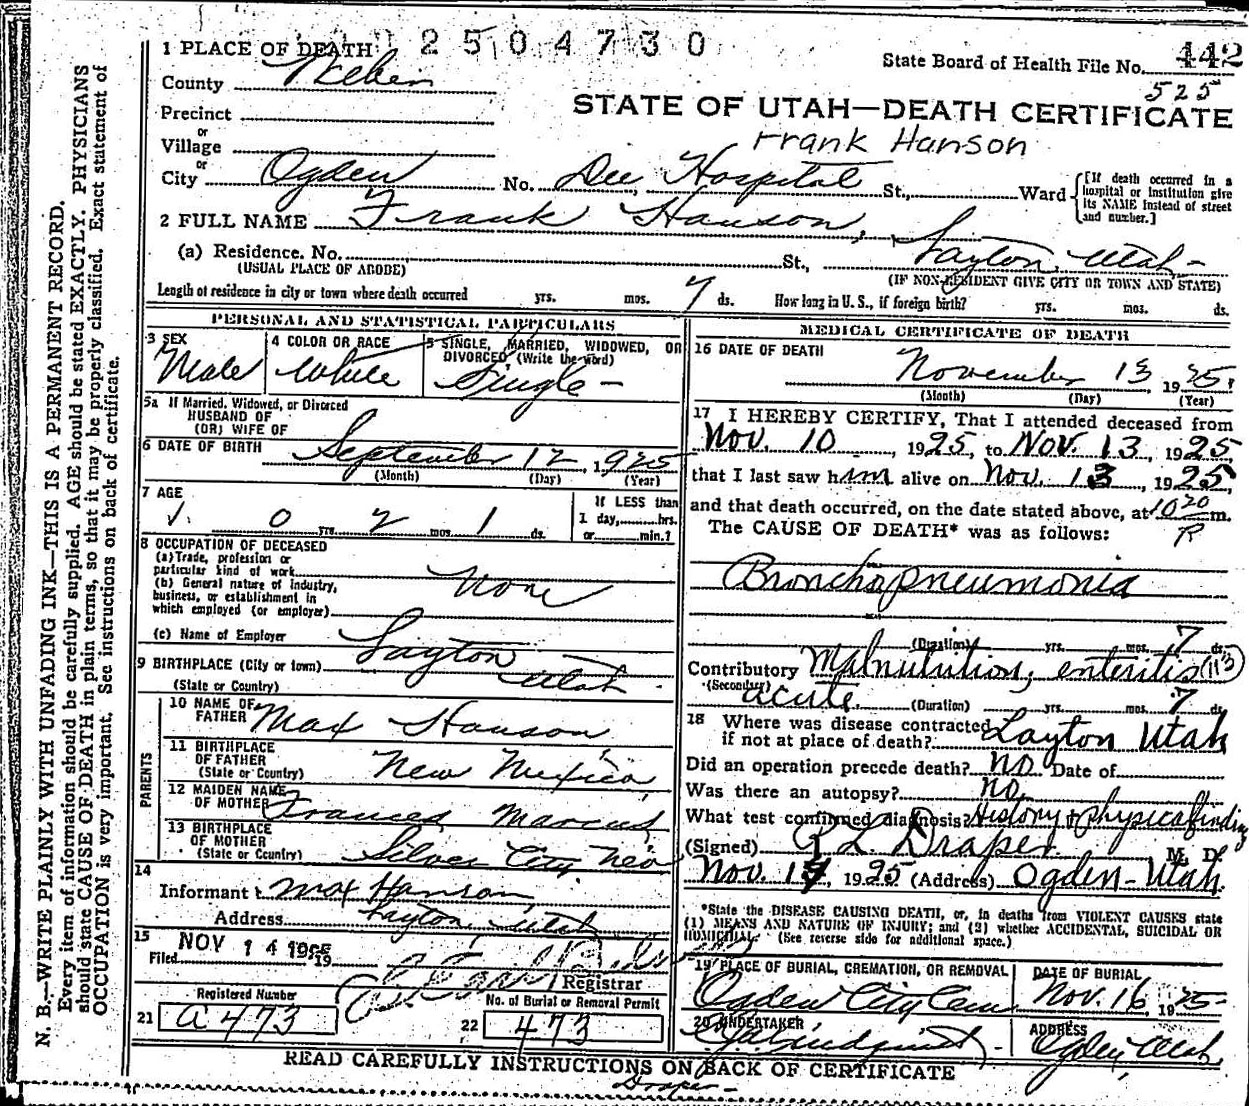 2504730
1 PLACE OF DEATH
State Board of Health File No. 442
County Weber
525
STATE OF UTAH—DEATH CERTIFICATE
Precinct
or
Village
Frank Hanson
or
City Ogden No. Dee Hospital St., Ward [If death occurred in a hospital or institution give its NAME instead of street and number.]
2 FULL NAME Frank Hanson,
(a) Residence. No. St., Layton, Utah-
(USUAL PLACE OF ABODE) (IF NON-RESIDENT GIVE CITY OR TOWN AND STATE)
Length of residence in city or town where death occurred yrs. mos. 7 ds. How long in U. S., if foreign birth? yrs. mos. ds.
PERSONAL AND STATISTICAL PARTICULARS
3 SEX
Male
4 COLOR OR RACE
White
5 SINGLE, MARRIED, WIDOWED, OR
DIVORCED (Write the word)
Single -
5a If Married, Widowed, or Divorced
HUSBAND OF
(OR) WIFE OF
6 DATE OF BIRTH September 12, 1925
(Month) (Day) (Year)
7 AGE
0 yrs. 2 mos. 1 ds.
If LESS than
1 day, hrs.
or min.?
8 OCCUPATION OF DECEASED
(a) Trade, profession or
particular kind of work
(b) General nature of industry,
business, or establishment in
which employed (or employer)
None
(c) Name of Employer
9 BIRTHPLACE (City or town) Layton
(State or Country) Utah.
PARENTS
10 NAME OF
FATHER Max Hanson
11 BIRTHPLACE
OF FATHER
(State or Country) New Mexico,
12 MAIDEN NAME
OF MOTHER Frances Marcus,
13 BIRTHPLACE
OF MOTHER
(State or Country) Silver City, New
14
Informant Max Hanson,
Address Layton, Utah
15
Filed NOV 14 1925 19
Registrar
Registered Number
21 a 473
No. of Burial or Removal Permit
22 473
MEDICAL CERTIFICATE OF DEATH
16 DATE OF DEATH
November 13 1925.
(Month) (Day) (Year)
17 I HEREBY CERTIFY, That I attended deceased from
Nov. 10, 1925, to Nov. 13, 1925,
that I last saw him alive on Nov. 13, 1925,
and that death occurred, on the date stated above, at 10 20 m.
P
The CAUSE OF DEATH* was as follows:
Bronchopneumonia
(Duration) yrs. mos. 7 ds.
Contributory Malnutrition, enteritis (113)
(Secondary) acute. (Duration) yrs. mos. 7 ds.
18 Where was disease contracted
if not at place of death? Layton Utah
Did an operation precede death? no Date of
Was there an autopsy? no
What test confirmed diagnosis? History & physical finding
(Signed) R L Draper. M. D.
Nov. 14, 1925 (Address) Ogden-Utah.
*State the DISEASE CAUSING DEATH, or, in deaths from VIOLENT CAUSES state
(1) MEANS AND NATURE OF INJURY; and (2) whether ACCIDENTAL, SUICIDAL OR
HOMICIDAL. (See reverse side for additional space.)
19 PLACE OF BURIAL, CREMATION, OR REMOVAL
Ogden City Cem
DATE OF BURIAL
Nov. 16, 1925
20 UNDERTAKER
Lindquist
ADDRESS
Ogden, Utah
READ CAREFULLY INSTRUCTIONS ON BACK OF CERTIFICATE
Draper-
N. B.—WRITE PLAINLY WITH UNFADING INK—THIS IS A PERMANENT RECORD.
Every item of information should be carefully supplied. AGE should be stated EXACTLY. PHYSICIANS
should state CAUSE OF DEATH in plain terms, so that it may be properly classified. Exact statement of
OCCUPATION is very important. See instructions on back of certificate.